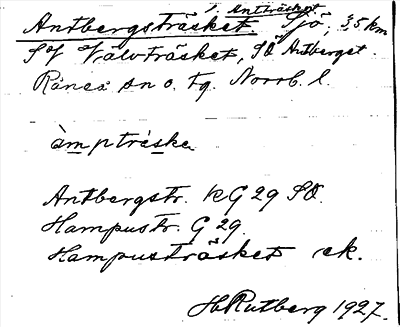 l. Antträsket
Antbergsträsket. Sjö, 3,5 km
SV Välvträsket, SO Antberget.
Råneå sn o. tg. Norrb. l.
àmptráske
Antbergstr. kG 29 SO.
Hampustr. G 29.
Hampusträsket ek.
H Rutberg 1927.